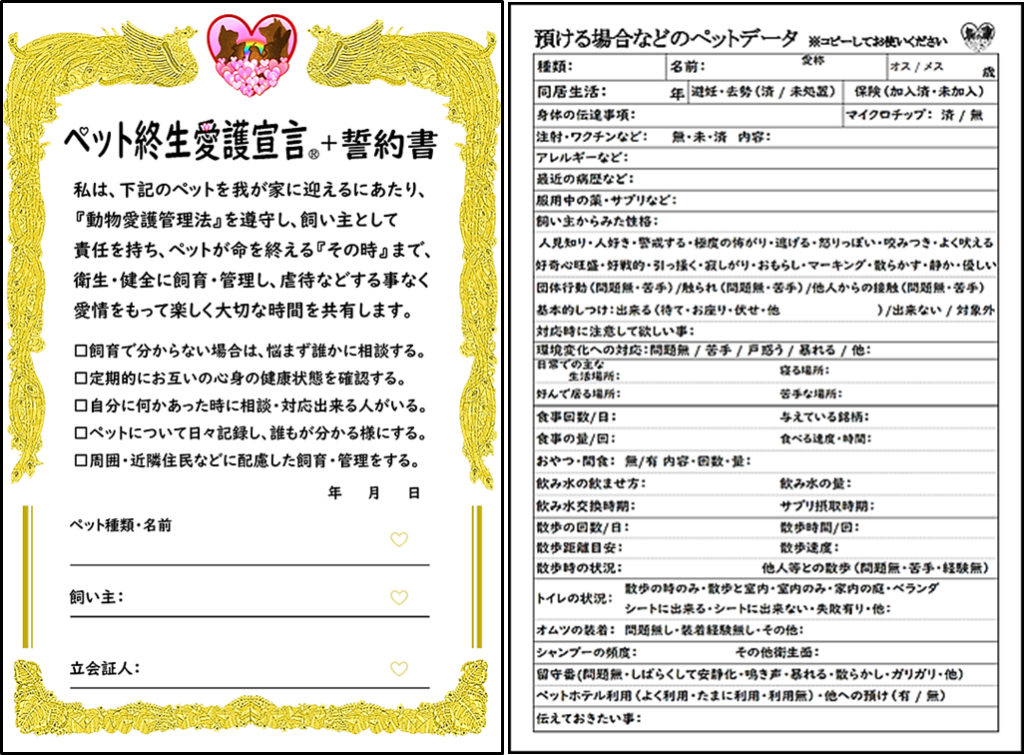 ペット終生愛護宣言®+誓約書
私は、下記のペットを我が家に迎えるにあたり、
『動物愛護管理法』を遵守し、飼い主として
責任を持ち、ペットが命を終える『その時』まで、
衛生・健全に飼育・管理し、虐待などする事なく
愛情をもって楽しく大切な時間を共有します。
□飼育で分からない場合は、悩まず誰かに相談する。
□定期的にお互いの心身の健康状態を確認する。
□自分に何かあった時に相談・対応出来る人がいる。
□ペットについて日々記録し、誰もが分かる様にする。
□周囲・近隣住民などに配慮した飼育・管理をする。
年 月 日
ペット種類・名前
飼い主：
立会証人：
預ける場合などのペットデータ ※コピーしてお使いください
種類： 名前： 愛称 オス / メス 歳
同居生活： 年 避妊・去勢（済 / 未処置） 保険（加入済・未加入）
身体の伝達事項： マイクロチップ： 済 / 無
注射・ワクチンなど： 無・未・済 内容：
アレルギーなど：
最近の病歴など：
服用中の薬・サプリなど：
飼い主からみた性格：
人見知り・人好き・警戒する・極度の怖がり・逃げる・怒りっぽい・咬みつき・よく吠える
好奇心旺盛・好戦的・引っ掻く・寂しがり・おもらし・マーキング・散らかす・静か・優しい
団体行動（問題無・苦手）/触られ（問題無・苦手）/他人からの接触（問題無・苦手）
基本的しつけ：出来る（待て・お座り・伏せ・他 ）/出来ない / 対象外
対応時に注意して欲しい事：
環境変化への対応：問題無 / 苦手 / 戸惑う / 暴れる / 他：
日常での主な
生活場所： 寝る場所：
好んで居る場所： 苦手な場所：
食事回数/日： 与えている銘柄：
食事の量/回： 食べる速度・時間：
おやつ・間食： 無/有 内容・回数・量：
飲み水の飲ませ方： 飲み水の量：
飲み水交換時期： サプリ摂取時期：
散歩の回数/日： 散歩時間/回：
散歩距離目安： 散歩速度：
散歩時の状況： 他人等との散歩（問題無・苦手・経験無）
トイレの状況： 散歩の時のみ・散歩と室内・室内のみ・家内の庭・ベランダ
シートに出来る・シートに出来ない・失敗有り・他：
オムツの装着： 問題無し・装着経験無し・その他：
シャンプーの頻度： その他衛生面：
留守番（問題無・しばらくして安静化・鳴き声・暴れる・散らかし・ガリガリ・他）
ペットホテル利用（よく利用・たまに利用・利用無）・他への預け（有 / 無）
伝えておきたい事：